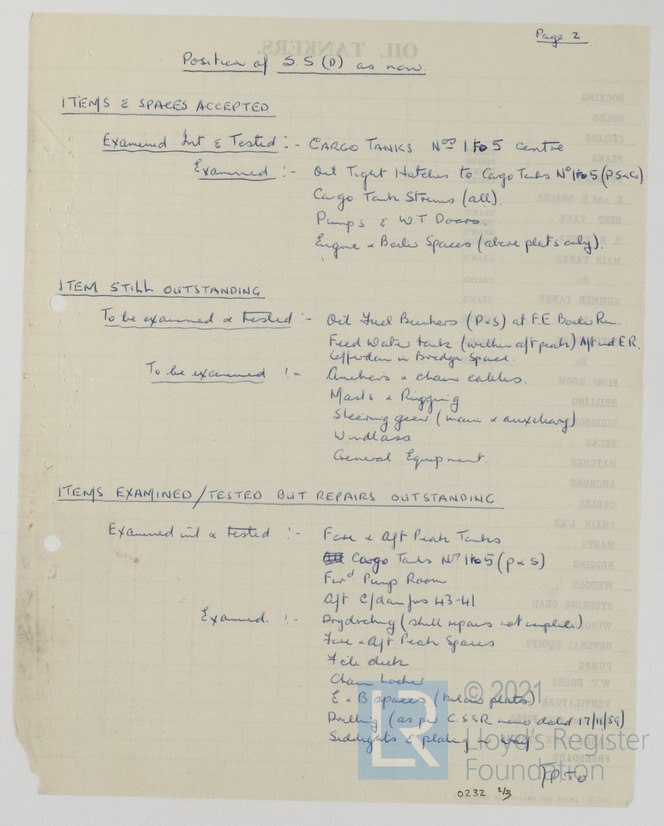 Page 2
OIL TANKERS.
Position of S.S (D) as now.
ITEMS & SPACES ACCEPTED
Examined Int & Tested :- CARGO TANKS Nos 1 to 5 centre
Examined :- Oil Tight Hatches to Cargo Tanks No 1 to 5 (P S & C)
Cargo Tank Strums (all).
Pumps & W.T Doors.
Engine & Boiler Spaces (above plats only).
ITEM STILL OUTSTANDING
To be examined & tested :- Oil Fuel Bunkers (P & S) at F.E Boiler Rm.
Feed Water tank (within aft peak) Aft end E.R.
Cofferdam in Bridge Space.
To be examined :- Anchors & chain cables.
Masts & Rigging
Steering gear (main & auxiliary)
Windlass
General Equipment.
ITEMS EXAMINED/TESTED BUT REPAIRS OUTSTANDING
Examined int & tested :- Fore & Aft Peak Tanks
Cargo Tanks No 1 to 5 (P & S)
For'd Pump Room
Aft C/dam frs 43-41
Examined. :- Drydocking (shell repairs not complete)
Fore & Aft Peak Spaces
deck
Chain Locker
E & B spaces (below plates)
Drilling (as per C.SSR memo dated 17/11/59)
Sidelights & plating in way
PTO
0232 2/3
LR
© 2021
Lloyd's Register
Foundation